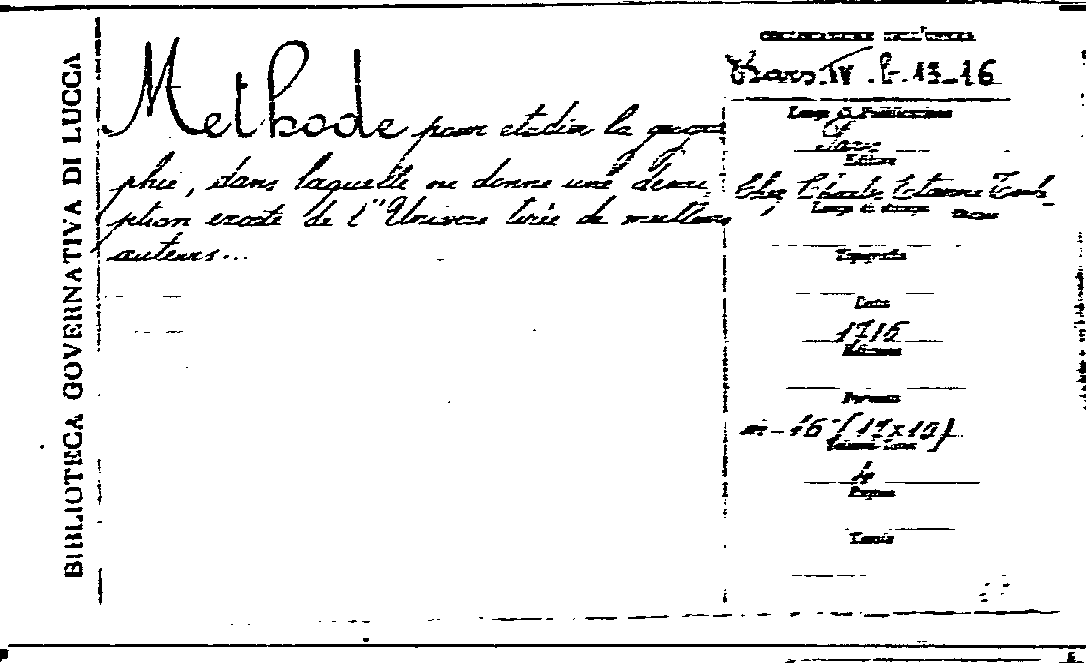 BIBLIOTECA GOVERNATIVA DI LUCCA
Methode pour etudier la geogra
phie, dans laquelle on donne une descri
ption exacte de l'Univers tirée de meilleurs
auteurs...
IV. b. 13-16
Luogo di Pubblicazione
Paris
Editore
Chez Charles Etienne
Tipografia
Data
1716
Edizione
Formato
in-16° (17x10)
4
Pagine
Tavole